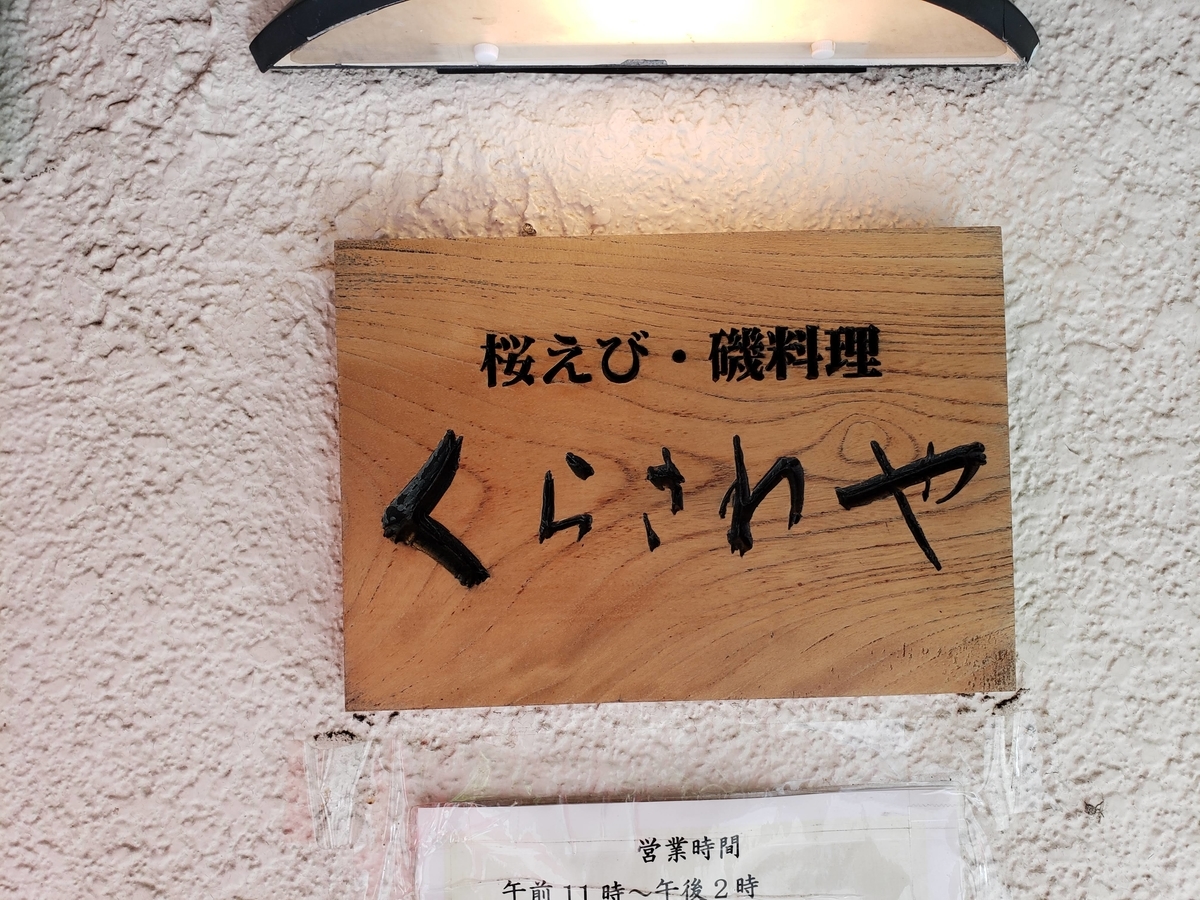 桜えび・磯料理
くらさわや
営業時間
午前11時～午後2時